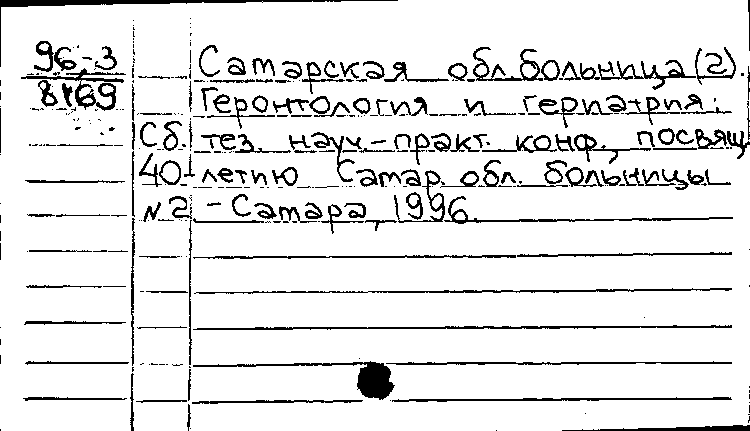 96-3 Самарская обл. больница (2).
8169 Геронтология и гериатрия:
Сб. тез. науч.-практ. конф., посвящ.
40-летию Самар. обл. больницы
N2 - Самара, 1996.